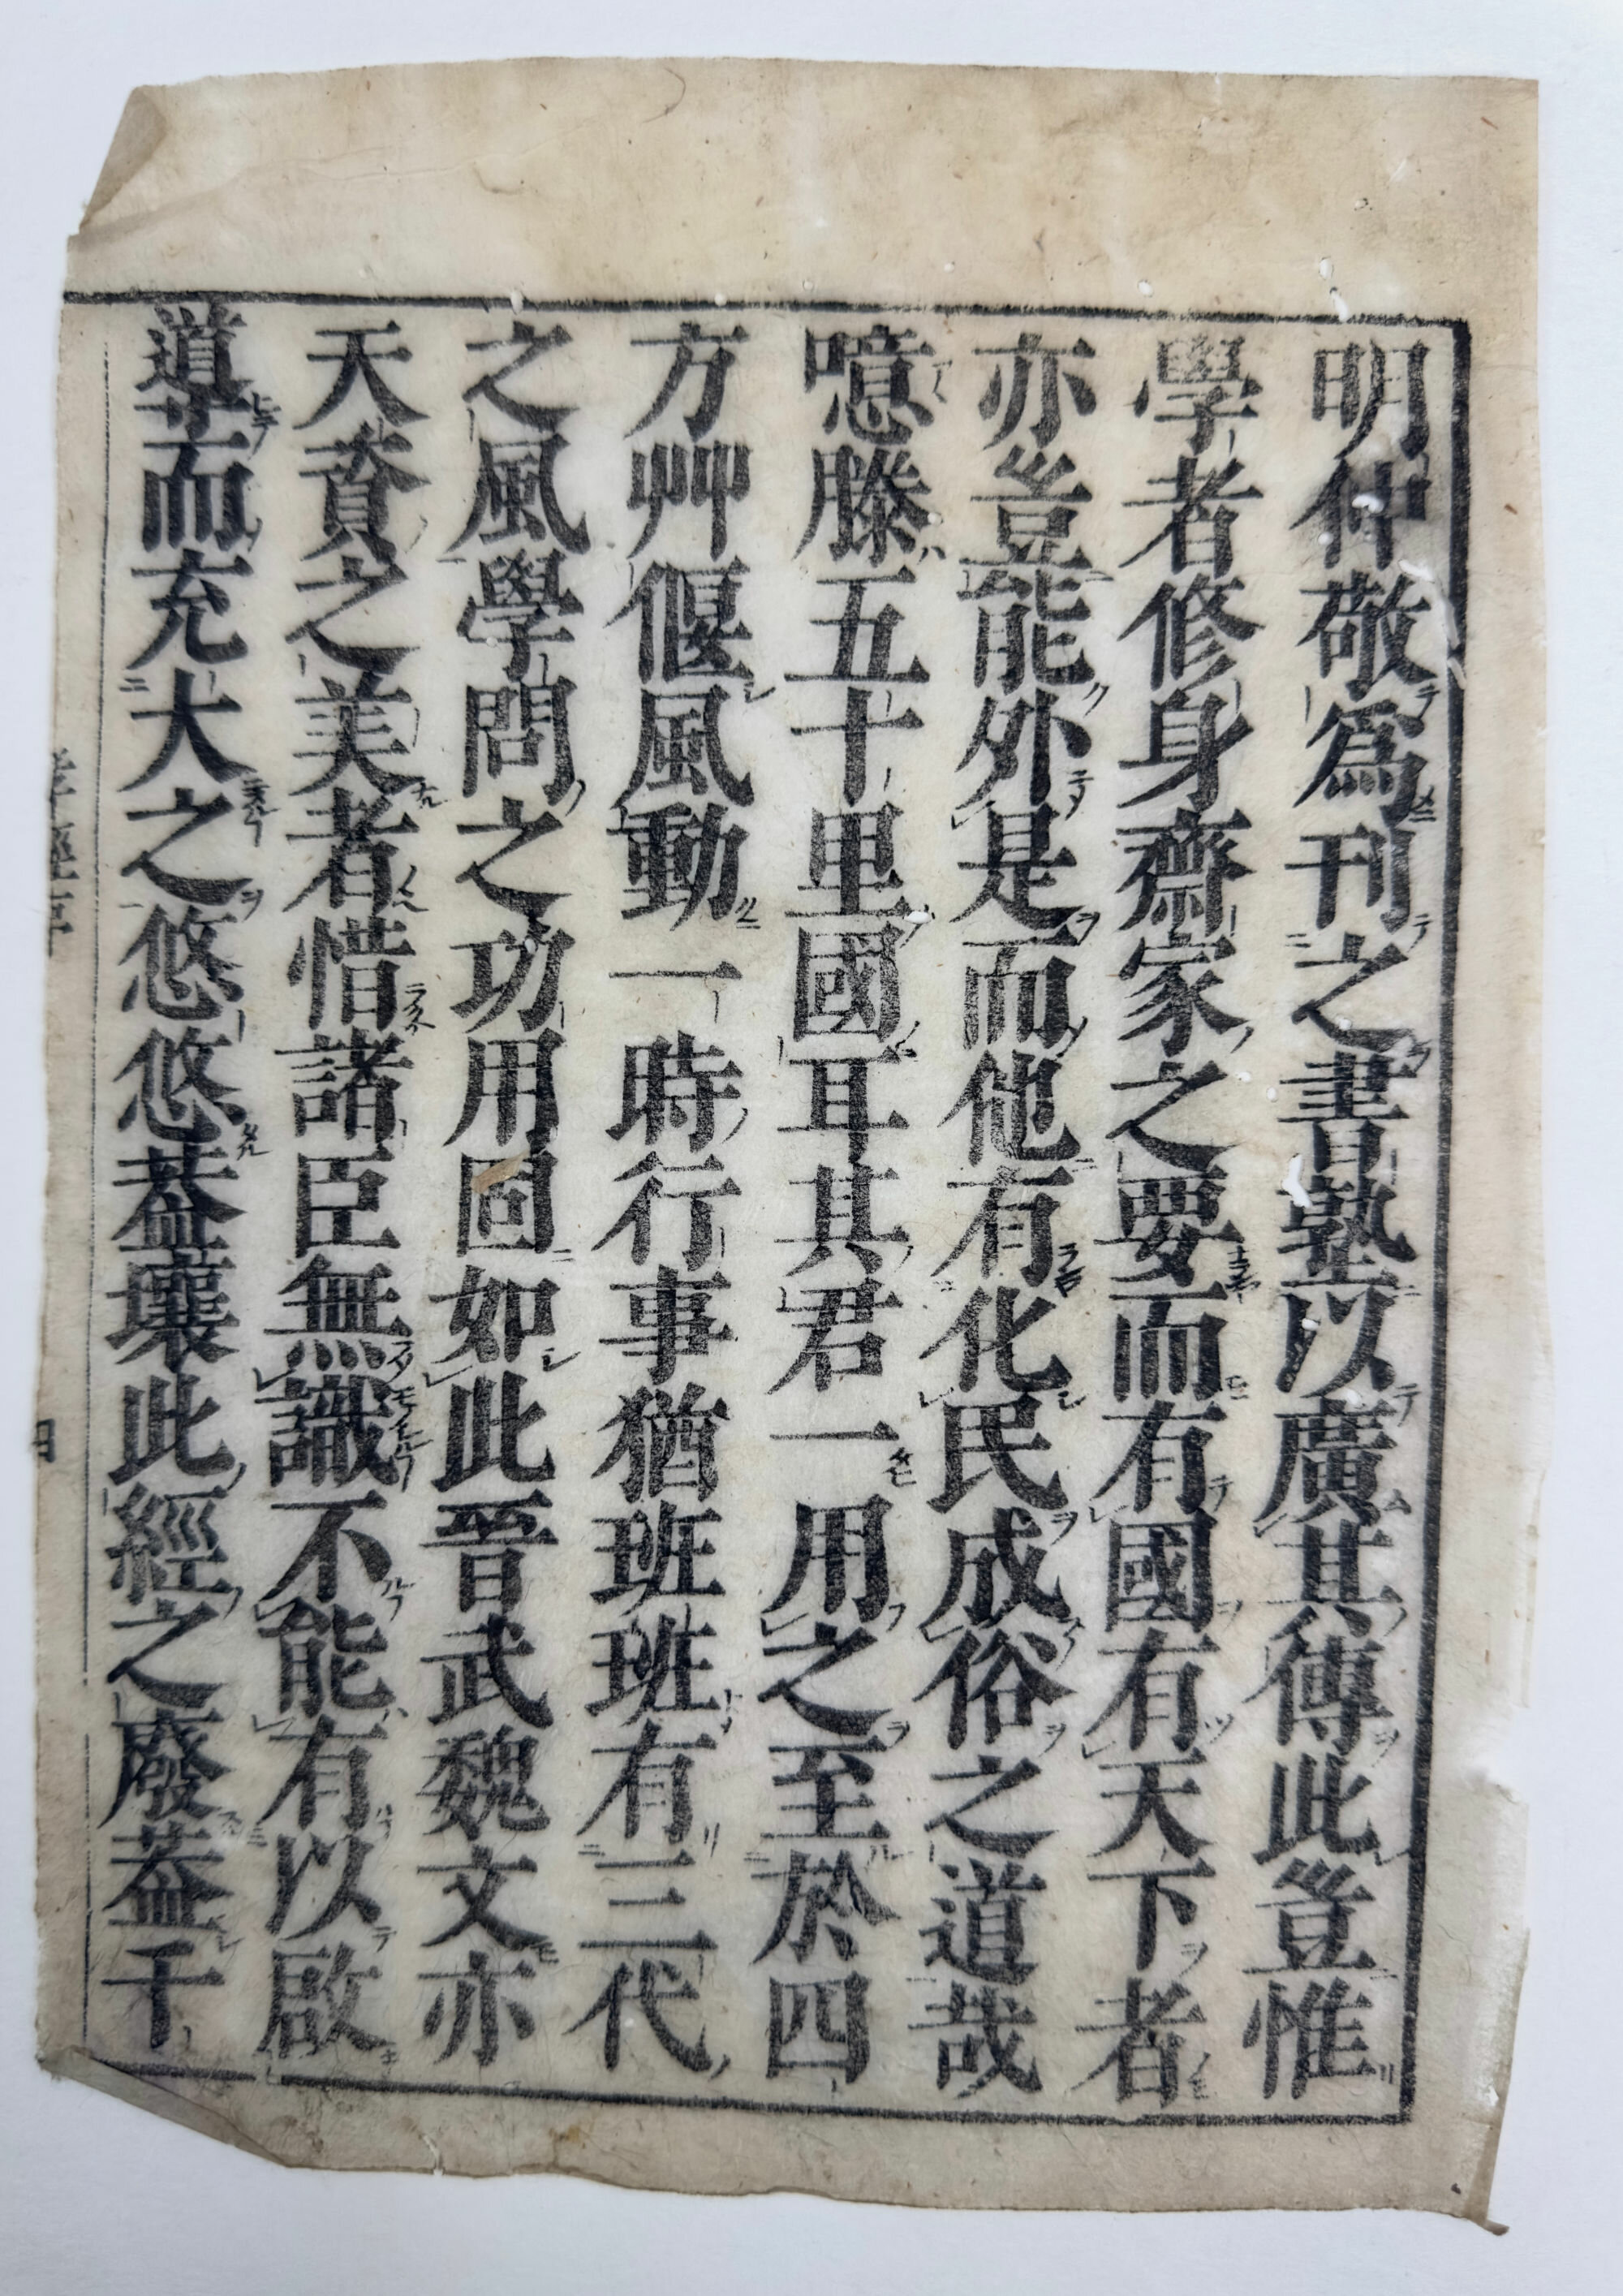 明仲敬爲刊之書塾以廣其傳此豈惟
學者修身齊家之要而有國有天下者
亦豈能外是而他有化民成俗之道哉
噫滕五十里國耳其君一用之至於四
方艸偃風動一時行事猶班班有三代
之風學問之功用固如此晉武魏文亦
天資之美者惜諸臣無識不能有以啟
導而充大之悠悠葢壤此經之廢葢千
孝經序
四